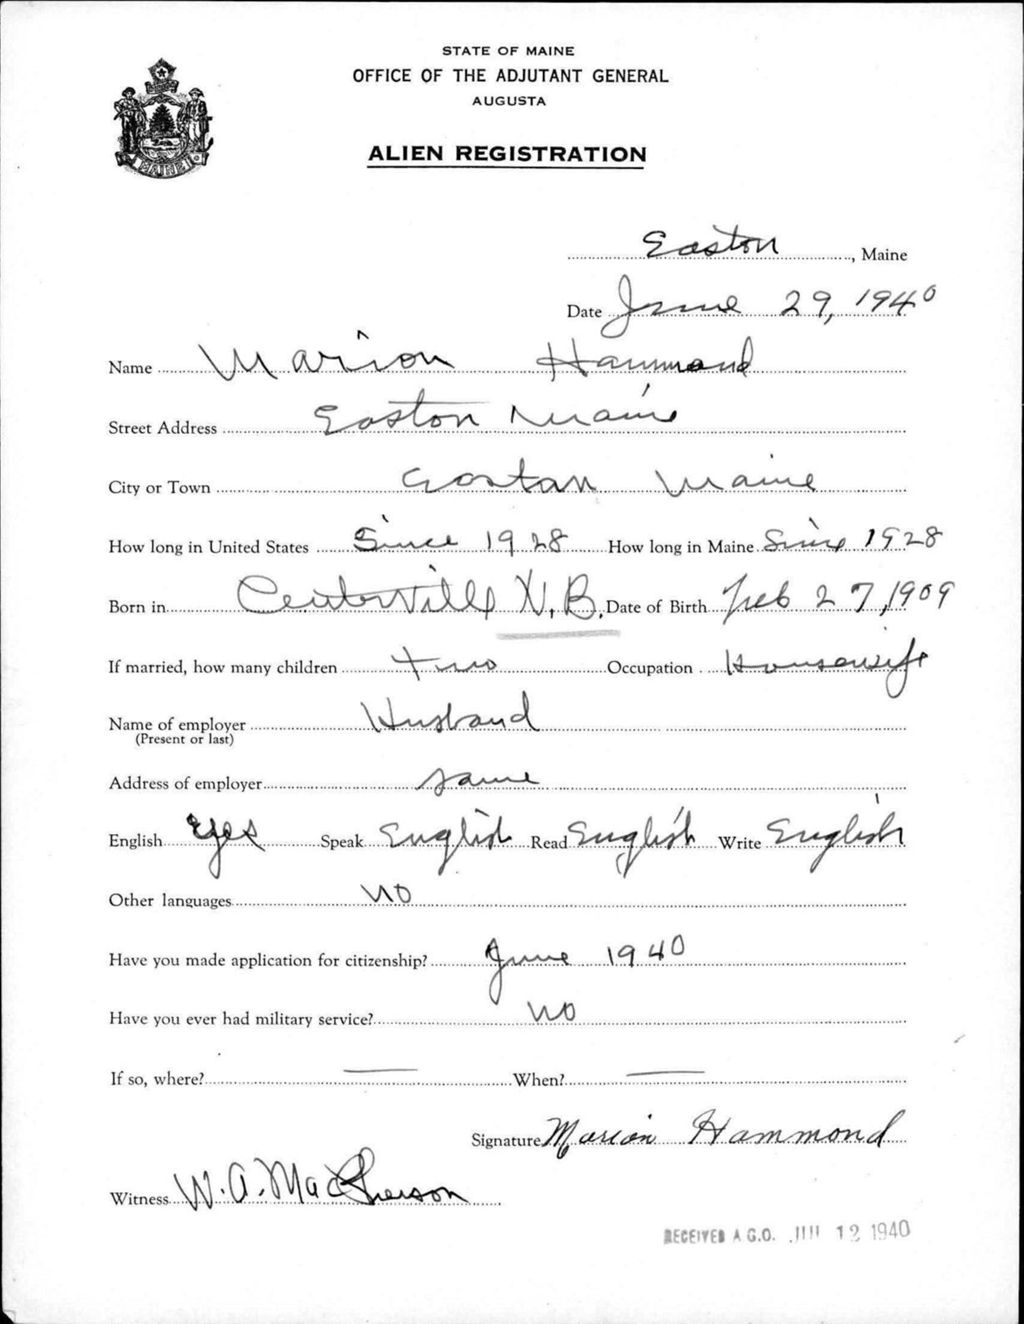 STATE OF MAINE
OFFICE OF THE ADJUTANT GENERAL
AUGUSTA
ALIEN REGISTRATION
MAINE
Easton, Maine
Date June 29, 1940
Name Marion Hammond
Street Address Easton Maine
City or Town Easton Maine
How long in United States Since 1928 How long in Maine Since 1928
Born in Centerville N.B. Date of Birth Feb 27, 1909
If married, how many children two Occupation Housewife
Name of employer Husband
(Present or last)
Address of employer same
English Yes Speak English Read English Write English
Other languages no
Have you made application for citizenship? June 1940
Have you ever had military service? no
If so, where? — When? —
Signature Marion Hammond
Witness W. A. MacPherson
RECEIVED A.G.O. 12 1940